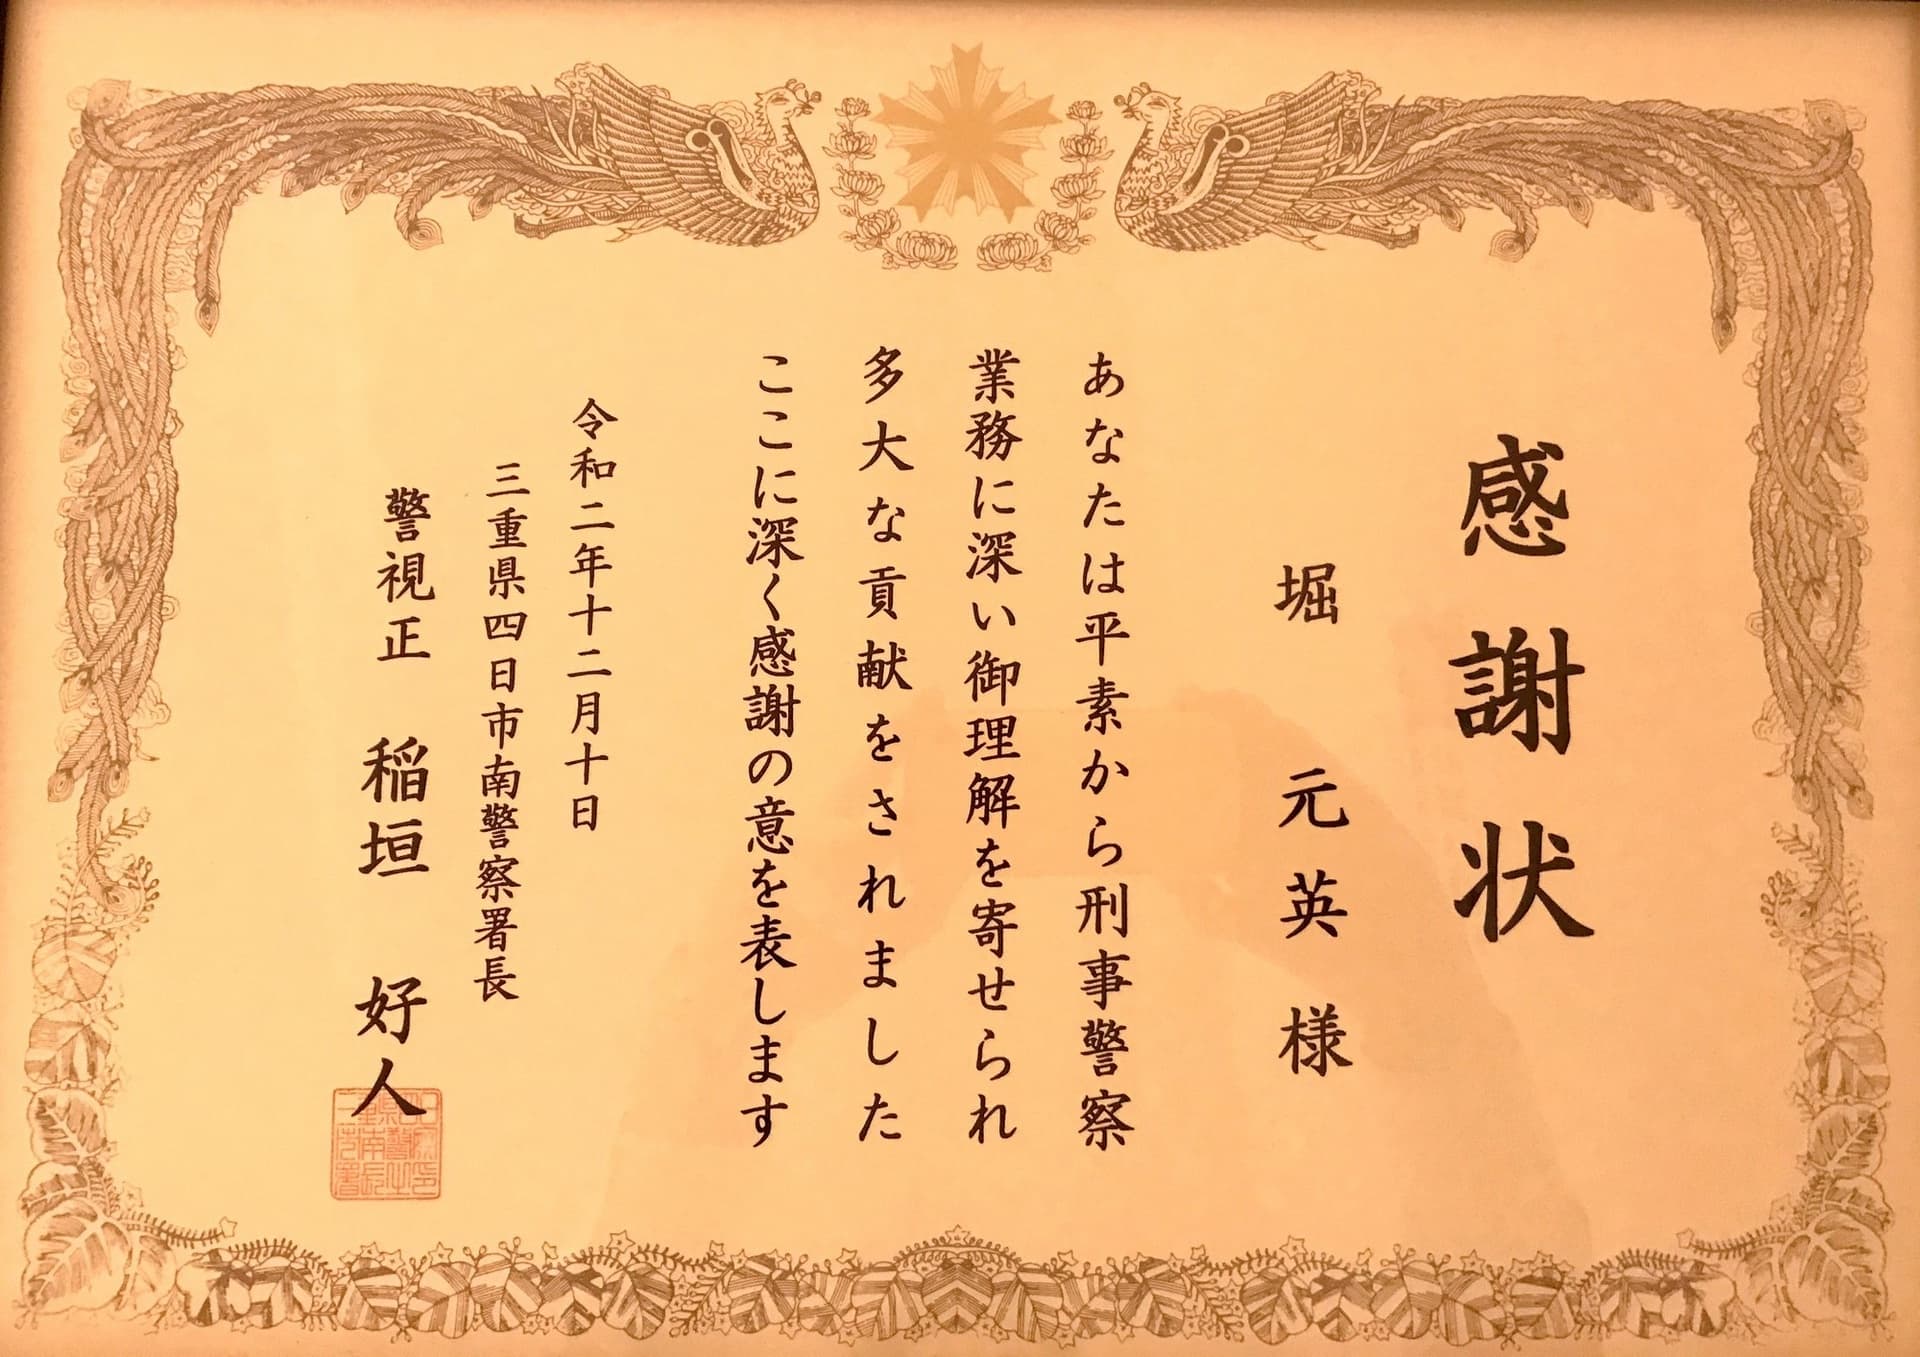 感謝状
堀 元英 様
あなたは平素から刑事警察
業務に深い御理解を寄せられ
多大な貢献をされました
ここに深く感謝の意を表します
令和二年十二月十日
三重県四日市南警察署長
警視正 稲垣 好人